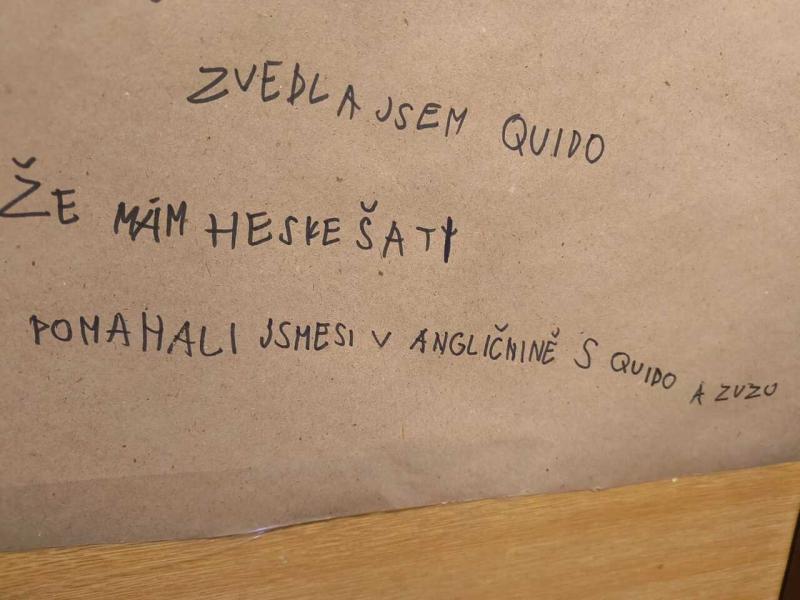 ZVEDLA JSEM QUIDO
ŽE MÁM HESKE ŠATY
POMAHALI JSMESI V ANGLIČNINĚ S QUIDO A ZUZU